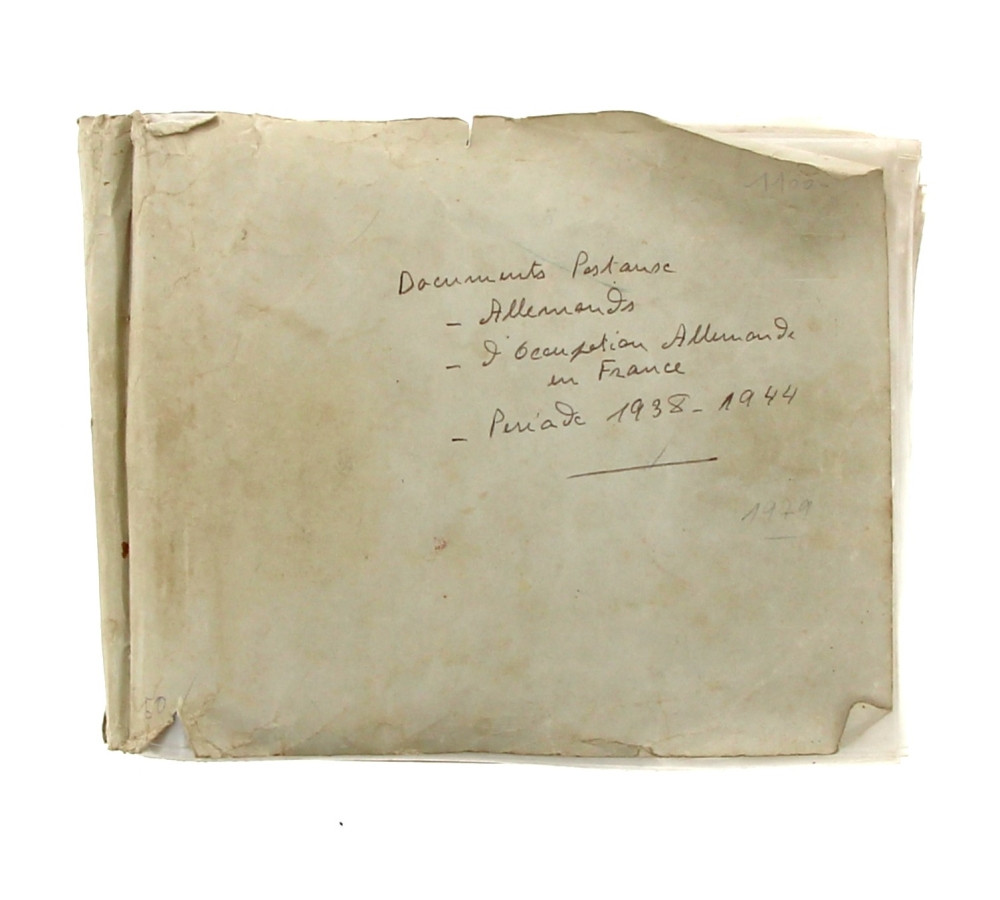 1100-
Documents Postaux
- Allemands
- d'Occupation Allemande
en France
- Période 1938-1944
1979
50